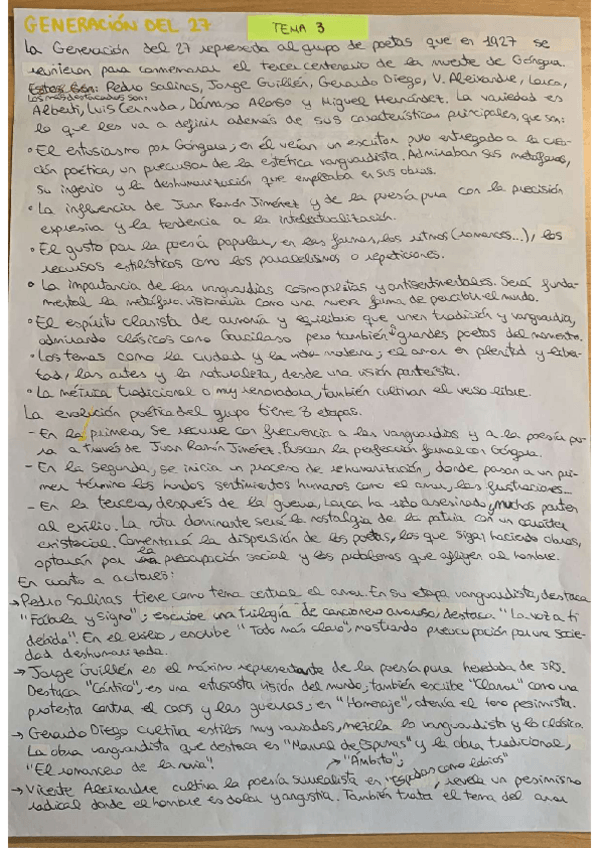 GENERACIÓN DEL 27
TEMA 3
La Generación del 27 representa al grupo de poetas que en 1927 se
reunieron para conmemorar el tercer centenario de la muerte de Góngora.
Estos son: Pedro Salinas, Jorge Guillén, Gerardo Diego, V. Aleixandre, Lorca,
Los más destacados son:
Alberti, Luis Cernuda, Dámaso Alonso y Miguel Hernández. La variedad es
lo que les va a definir además de sus características principales, que son:
• El entusiasmo por Góngora; en él veían un escritor puro entregado a la crea-
ción poética, un precursor de la estética vanguardista. Admiraban sus metáforas,
su ingenio y la deshumanización que empleaba en sus obras.
• La influencia de Juan Ramón Jiménez y de la poesía pura con la precisión
expresiva y la tendencia a la intelectualización.
• El gusto por la poesía popular, en las formas, los ritmos (romances...), los
recursos estilísticos como los paralelismos o repeticiones.
• La importancia de las vanguardias cosmopolitas y antisentimentales. Será funda-
mental la metáfora visionaria como una nueva forma de percibir el mundo.
• El espíritu clasista de armonía y equilibrio que unen tradición y vanguardia,
admirando clásicos como Garcilaso pero también a grandes poetas del momento.
• Los temas como la ciudad y la vida moderna; el amor en plenitud y liber-
tad, las artes y la naturaleza, desde una visión panteísta.
• La métrica tradicional o muy renovadora, también cultivan el verso libre.
La evolución poética del grupo tiene 3 etapas.
- En la primera, se recurre con frecuencia a las vanguardias y a la poesía pu-
ra a través de Juan Ramón Jiménez. Buscan la perfección formal con Góngora.
- En la segunda, se inicia un proceso de rehumanización, donde pasan a un pri-
mer término los hondos sentimientos humanos como el amor, las frustraciones...
- En la tercera, después de la guerra, Lorca ha sido asesinado, muchos parten
al exilio. La nota dominante será la nostalgia de la patria con un carácter
existencial. Comentará la dispersión de los poetas, los que sigan haciendo obras,
optarán por la preocupación social y los problemas que afligen al hombre.
En cuanto a autores:
→ Pedro Salinas tiene como tema central el amor. En su etapa vanguardista, destaca
"Fábula y Signo"; escribe una trilogía de cancionero amoroso, destaca "La voz a ti
debida". En el exilio, escribe "Todo más claro", mostrando preocupación por una socie-
dad deshumanizada.
→ Jorge Guillén es el máximo representante de la poesía pura heredada de JRJ.
Destaca "Cántico", es una entusiasta visión del mundo; también escribe "Clamor" como una
protesta contra el caos y las guerras; en "Homenaje", atenúa el tono pesimista.
→ Gerardo Diego cultiva estilos muy variados, mezcla lo vanguardista y lo clásico.
La obra vanguardista que destaca es "Manual de Espumas" y la obra tradicional,
"El romancero de la novia".
→ "Ámbito";
→ Vicente Aleixandre cultiva la poesía surrealista en "Espadas como labios", revela un pesimismo
radical donde el hombre es dolor y angustia. También trata el tema del amor